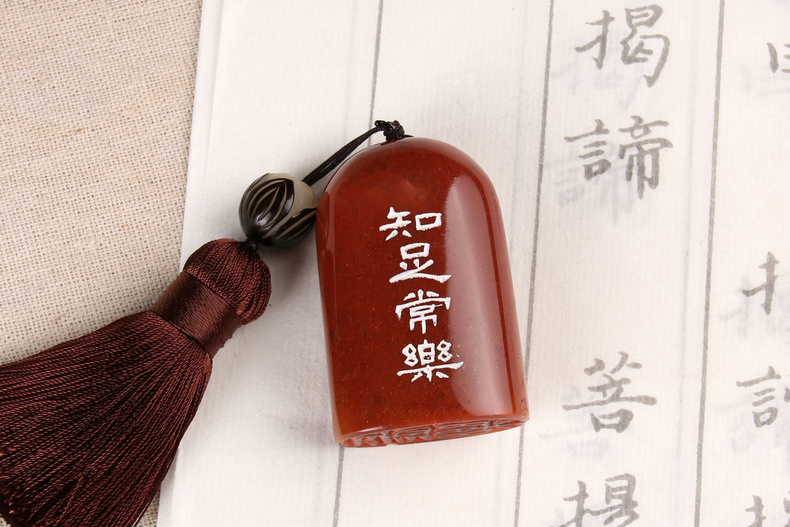 知足常樂
揭
諦
菩
揭